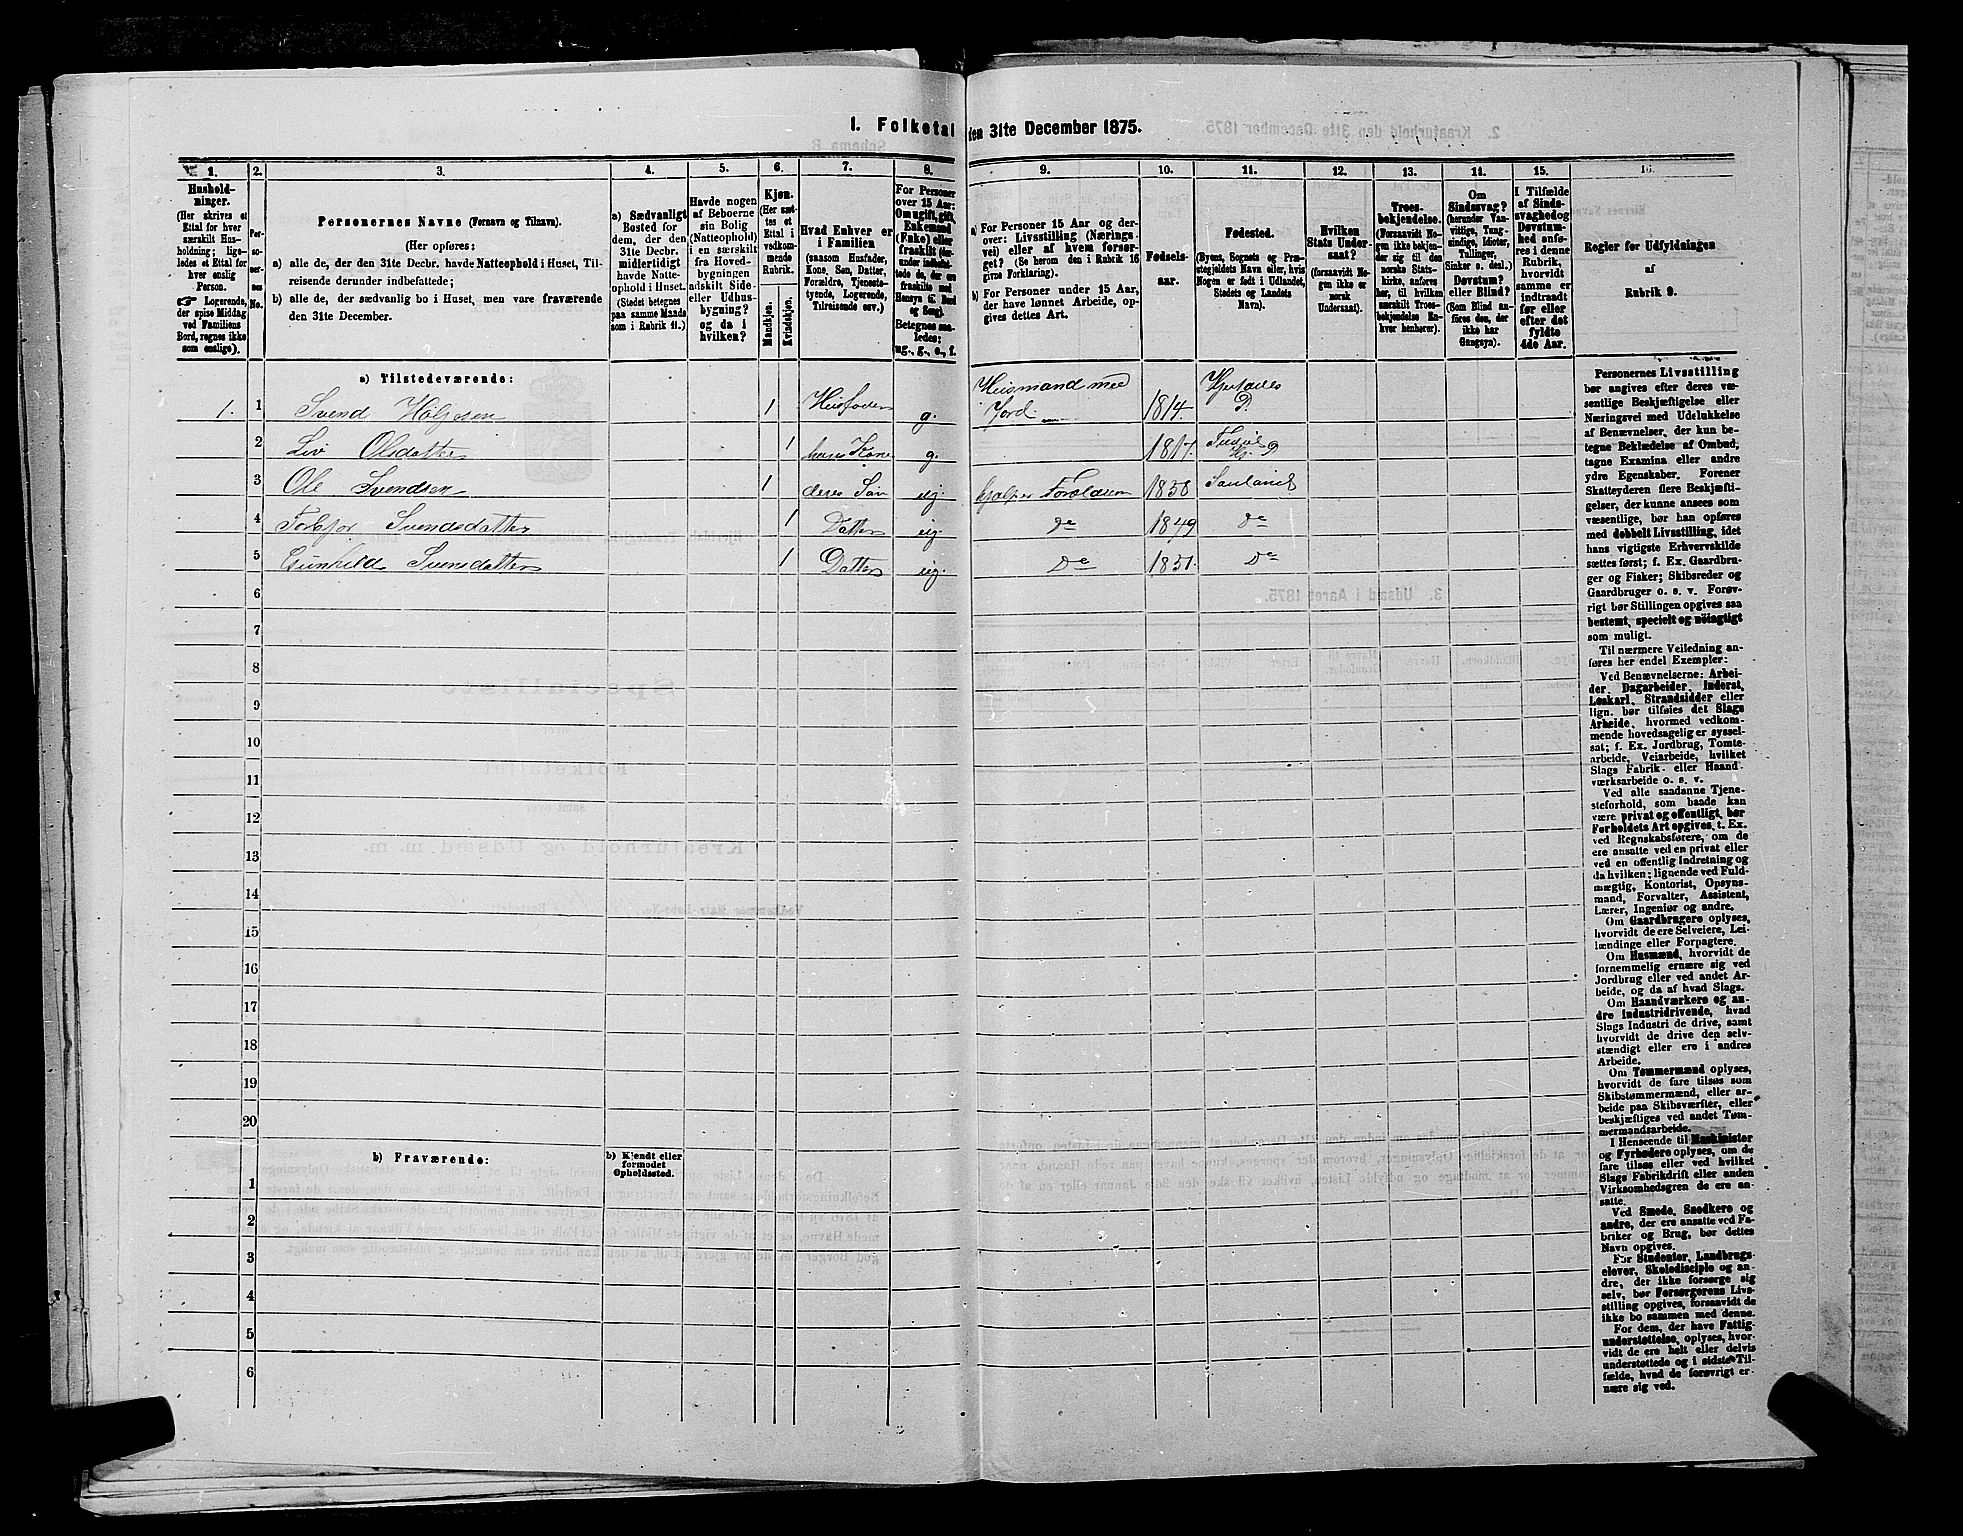 1. Folketal den 31te December 1875.
1.
Hushold-
ninger.
(Her skrives et
Ettal for hver
særskilt Hus-
holdning; lige-
ledes et Ettal for
hver enslig
Person.
☞ Logerende,
der spise Middag
ved Familiens
Bord, regnes ikke
som enslige).
2.
Per-
so-
ner-
nes
No.
3.
Personernes Navne (Fornavn og Tilnavn).
(Her opføres:
a) alle de, der den 31te Decbr. havde Natteophold i Huset, Til-
reisende derunder indbefattede;
b) alle de, der sædvanlig bo i Huset, men vare fraværende
den 31te December.
4.
a) Sædvanligt
Bosted for
dem, der den
31te Decbr.
midlertidigt
havde Natte-
ophold i Huset.
(Stedet betegnes
paa samme Maade
som i Rubrik 11.)
5.
Havde nogen
af Beboerne
sin Bolig
(Natteophold)
i en særskilt
fra Hoved-
bygningen
adskilt Side-
eller Udhus-
bygning?
og da i
hvilken?
6.
Kjøn.
(Her sæt-
tes et
Ettal i
vedkom-
mende
Rubrik.
Mandkjøn.
Kvindekjøn.
7.
Hvad Enhver er
i Familien
(saasom Husfader,
Kone, Søn, Datter,
Forældre, Tjeneste-
tyende, Logerende,
Tilreisende osv.)
8.
For Personer
over 15 Aar:
Om ugift, gift,
Enkemand
(Enke) eller
fraskilt (der-
under indbefat-
tede de, der ere
fraskilte med
Hensyn til Bord
og Seng).
Betegnes saa-
ledes:
ug., g., e., f.
9.
a) For Personer 15 Aar og der-
over: Livsstilling (Nærings-
vei) eller af hvem forsør-
get? (Se herom den i Rubrik 16
givne Forklaring).
b) For Personer under 15 Aar,
der have lønnet Arbeide, op-
gives dettes Art.
10.
Fødsels-
aar.
11.
Fødested.
(Byens, Sognets og Præ-
stegjeldets Navn eller, hvis
Nogen er født i Udlandet,
Stedets og Landets
Navn).
12.
Hvilken
Stats Under-
saat?
(forsaavidt No-
gen ikke er
norsk
Undersaat).
13.
Troes-
bekjendelse.
(Forsaavidt No-
gen ikke bekjen-
der sig til den
norske Stats-
kirke, anføres
her, til hvilken
særskilt Troes-
bekjendelse En-
hver henhører).
14.
Om
Sindssvag?
(herunder Van-
vittige, Tung-
sindige, Idioter,
Tullinger,
Sinker o. desl.)
Døvstum?
eller Blind?
(Som Blind an-
føres den, der
ikke har
Gangsyn).
15.
I Tilfælde
af Sinds-
svaghed og
Døvstum-
hed anfø-
res i denne
Rubrik,
hvorvidt
samme er
indtraadt
før eller
efter det
fyldte
4de Aar.
16.
Regler for Udfyldningen
af
Rubrik 9.
a) Tilstedeværende:
1. 1 Svend Holjesen 1 Husfader g. Husmand med Jord 1814. Hjertdals P.
2 Liv Olsdatter 1 hans Kone g. 1817. P
3 Ole Svendsen 1 deres Søn ug. hjælper Forældrene 1838 Sauland
4 Torbjør Svendsdatter 1 Datter ug. do 1849 do
5 Gunhild Svensdatter 1 Datter ug. Do 1851. Do
6
7
8
9
10
11
12
13
14
15
16
17
18
19
20
b) Fraværende:
b) Kjendt eller
formodet
Opholdssted.
1
2
3
4
5
6
Personernes Livsstilling
bør angives efter deres væ-
sentlige Beskjæftigelse eller
Næringsvei med Udelukkelse
af Benævnelser, der kun be-
tegne Beklædelse af Ombud,
tagne Examina eller andre
ydre Egenskaber. Forener
Skatteyderen flere Beskjæfti-
gelser, der kunne ansees som
væsentlige, bør han opføres
med dobbelt Livsstilling, idet
hans vigtigste Erhvervskilde
sættes først; f. Ex. Gaardbru-
ger og Fisker; Skibsreder og
Gaardbruger o. s. v. Forøv-
rigt bør Stillingen opgives saa
bestemt, specielt og nöiagtigt
som muligt.
Til nærmere Veiledning an-
føres her endel Exempler:
Ved Benævnelserne: Arbei-
der, Dagarbeider, Inderst,
Løskarl, Strandsidder eller
lign. bør tilføies det Slags
Arbeide, hvormed vedkom-
mende hovedsagelig er syssel-
sat; f. Ex. Jordbrug, Tomte-
arbeide, Veiarbeide, hvilket
Slags Fabrik- eller Haand-
værksarbeide o. s. v.
Ved alle saadanne Tjene-
steforhold, som baade kan
være privat og offentligt, bør
Forholdets Art opgives, t. Ex.
ved Regnskabsførere, om de
ere ansatte ved en privat eller
ved en offentlig Indretning og
da hvilken; lignende ved Fuld-
mægtig, Kontorist, Opsyns-
mand, Forvalter, Assistent,
Lærer, Ingeniør og andre.
Om Gaardbrugere oplyses,
hvorvidt de ere Selveiere, Lei-
lændinge eller Forpagtere.
Om Husmænd, hvorvidt de
fornemmelig ernære sig ved
Jordbrug eller ved andet Ar-
beide, og da af hvad Slags.
Om Haandværkere og an-
dre industridrivende, hvad
Slags Industri de drive, samt
hvorvidt de drive den selv-
stændigt eller ere i andres
Arbeide.
Om Tømmermænd oplyses,
hvorvidt de fare tilsøs som
Skibstømmermænd, eller ar-
beide paa Skibsværfter, eller
beskjæftiges ved andet Tøm-
mermandsarbeide.
I Henseende til Maskinister
og Fyrbødere oplyses, om de
fare tilsøs eller ved hvilket
Slags Fabrikdrift eller anden
Virksomhedsgren de ere an-
satte.
Ved Smede, Snedkere og
andre, der ere ansatte ved Fa-
briker og Brug, bør dettes
Navn opgives.
For Studenter, Landbrugs-
elever, Skoledisciple og an-
dre, der ikke forsørge sig
selv, bør Forsørgerens Livs-
stilling opgives, forsaavidt de
ikke bo sammen med denne.
For dem, der have Fattig-
understøttelse, oplyses, hvor-
vidt de ere helt eller delvis
understøttede og i sidste Til-
fælde, hvad de forøvrigt er-
nære sig ved.